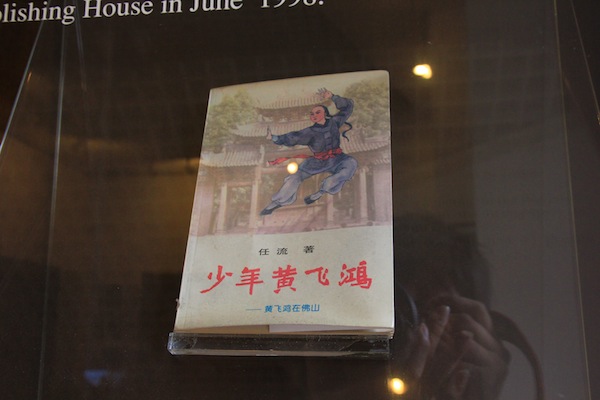 lishing House in June 1998.
任流 著
少年黄飞鸿
——黄飞鸿在佛山